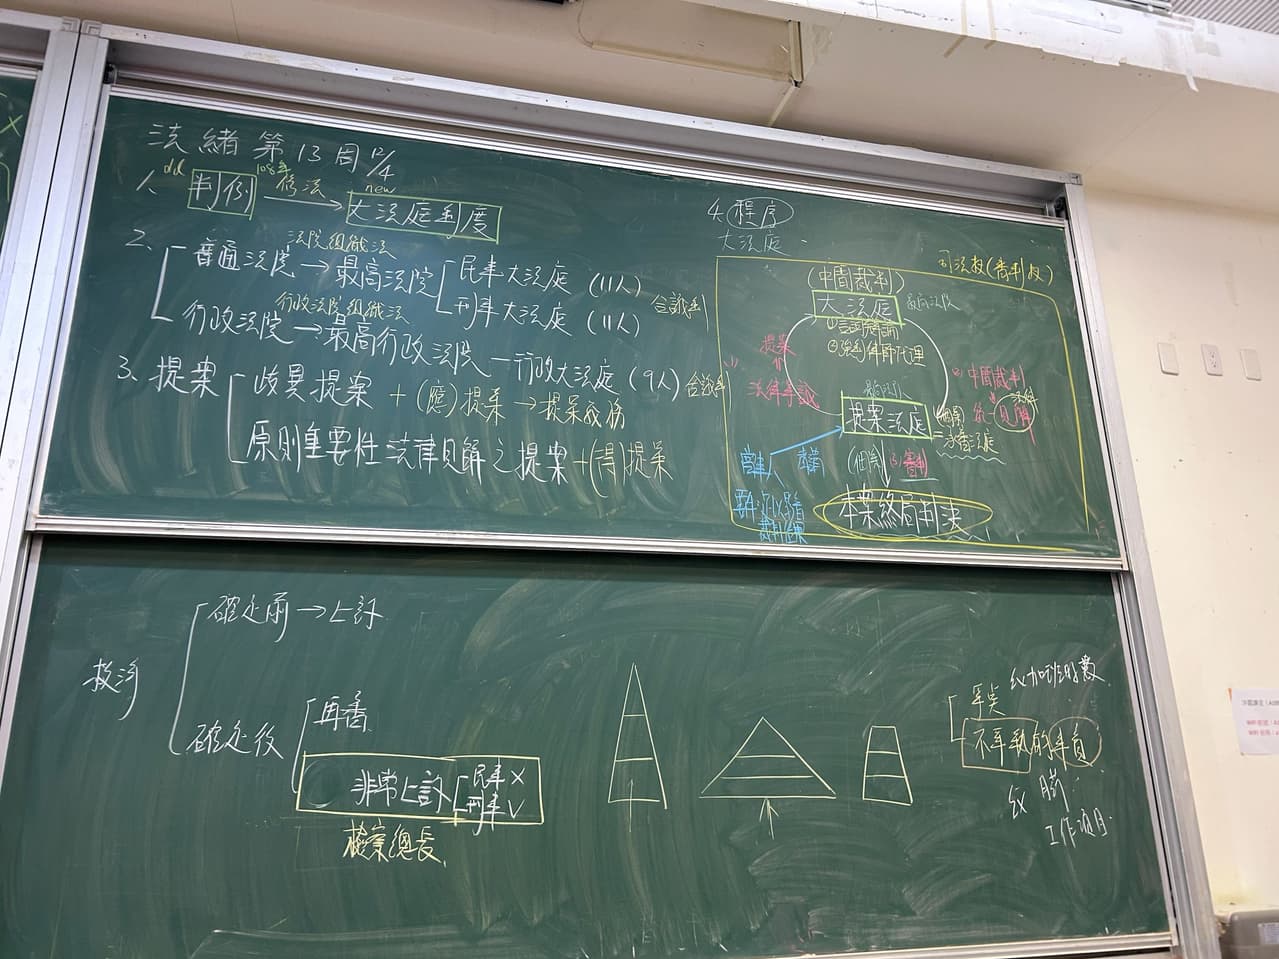 法緒第13周 12/4
1、old 判例 108年 修法 → new 大法庭制度
2、
普通法院 → 法院組織法 最高法院
民事大法庭 (11人)
刑事大法庭 (11人)
合議制
行政法院 → 行政法院組織法 最高行政法院 — 行政大法庭 (9人) 合議制
3、提案
歧異提案 + (應)提案 → 提案義務
原則重要性法律見解之提案 + (得)提案
4、程序
大法庭
司法權(審判權)
(中間裁判)
大法庭 最高法院
①言詞辯論
②強制律師代理
提案
法律爭議
中間裁判
統一見解 法律
提案法庭
個案
本案終局判決
確定前 → 上訴
救濟
確定後
再審
非常上訴
民事 X
刑事 V
檢察總長
ex 加班時數
不爭執的事實
ex
工作項目